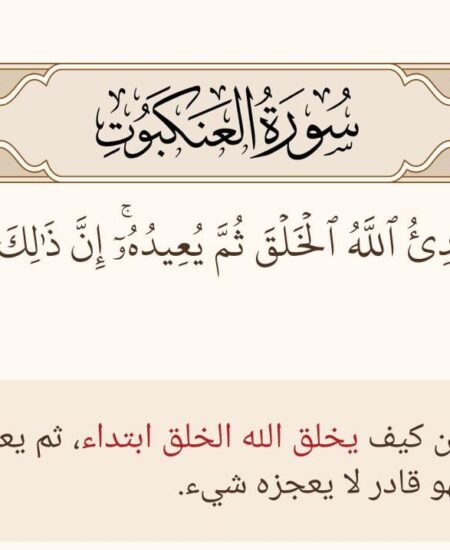 سُورَةُ العَنكَبُوتِ
ٱللَّهُ ٱلْخَلْقَ ثُمَّ يُعِيدُهُۥٓ ۚ إِنَّ ذَٰلِكَ
كيف يخلق الله الخلق ابتداء، ثم
قادر لا يعجزه شيء.